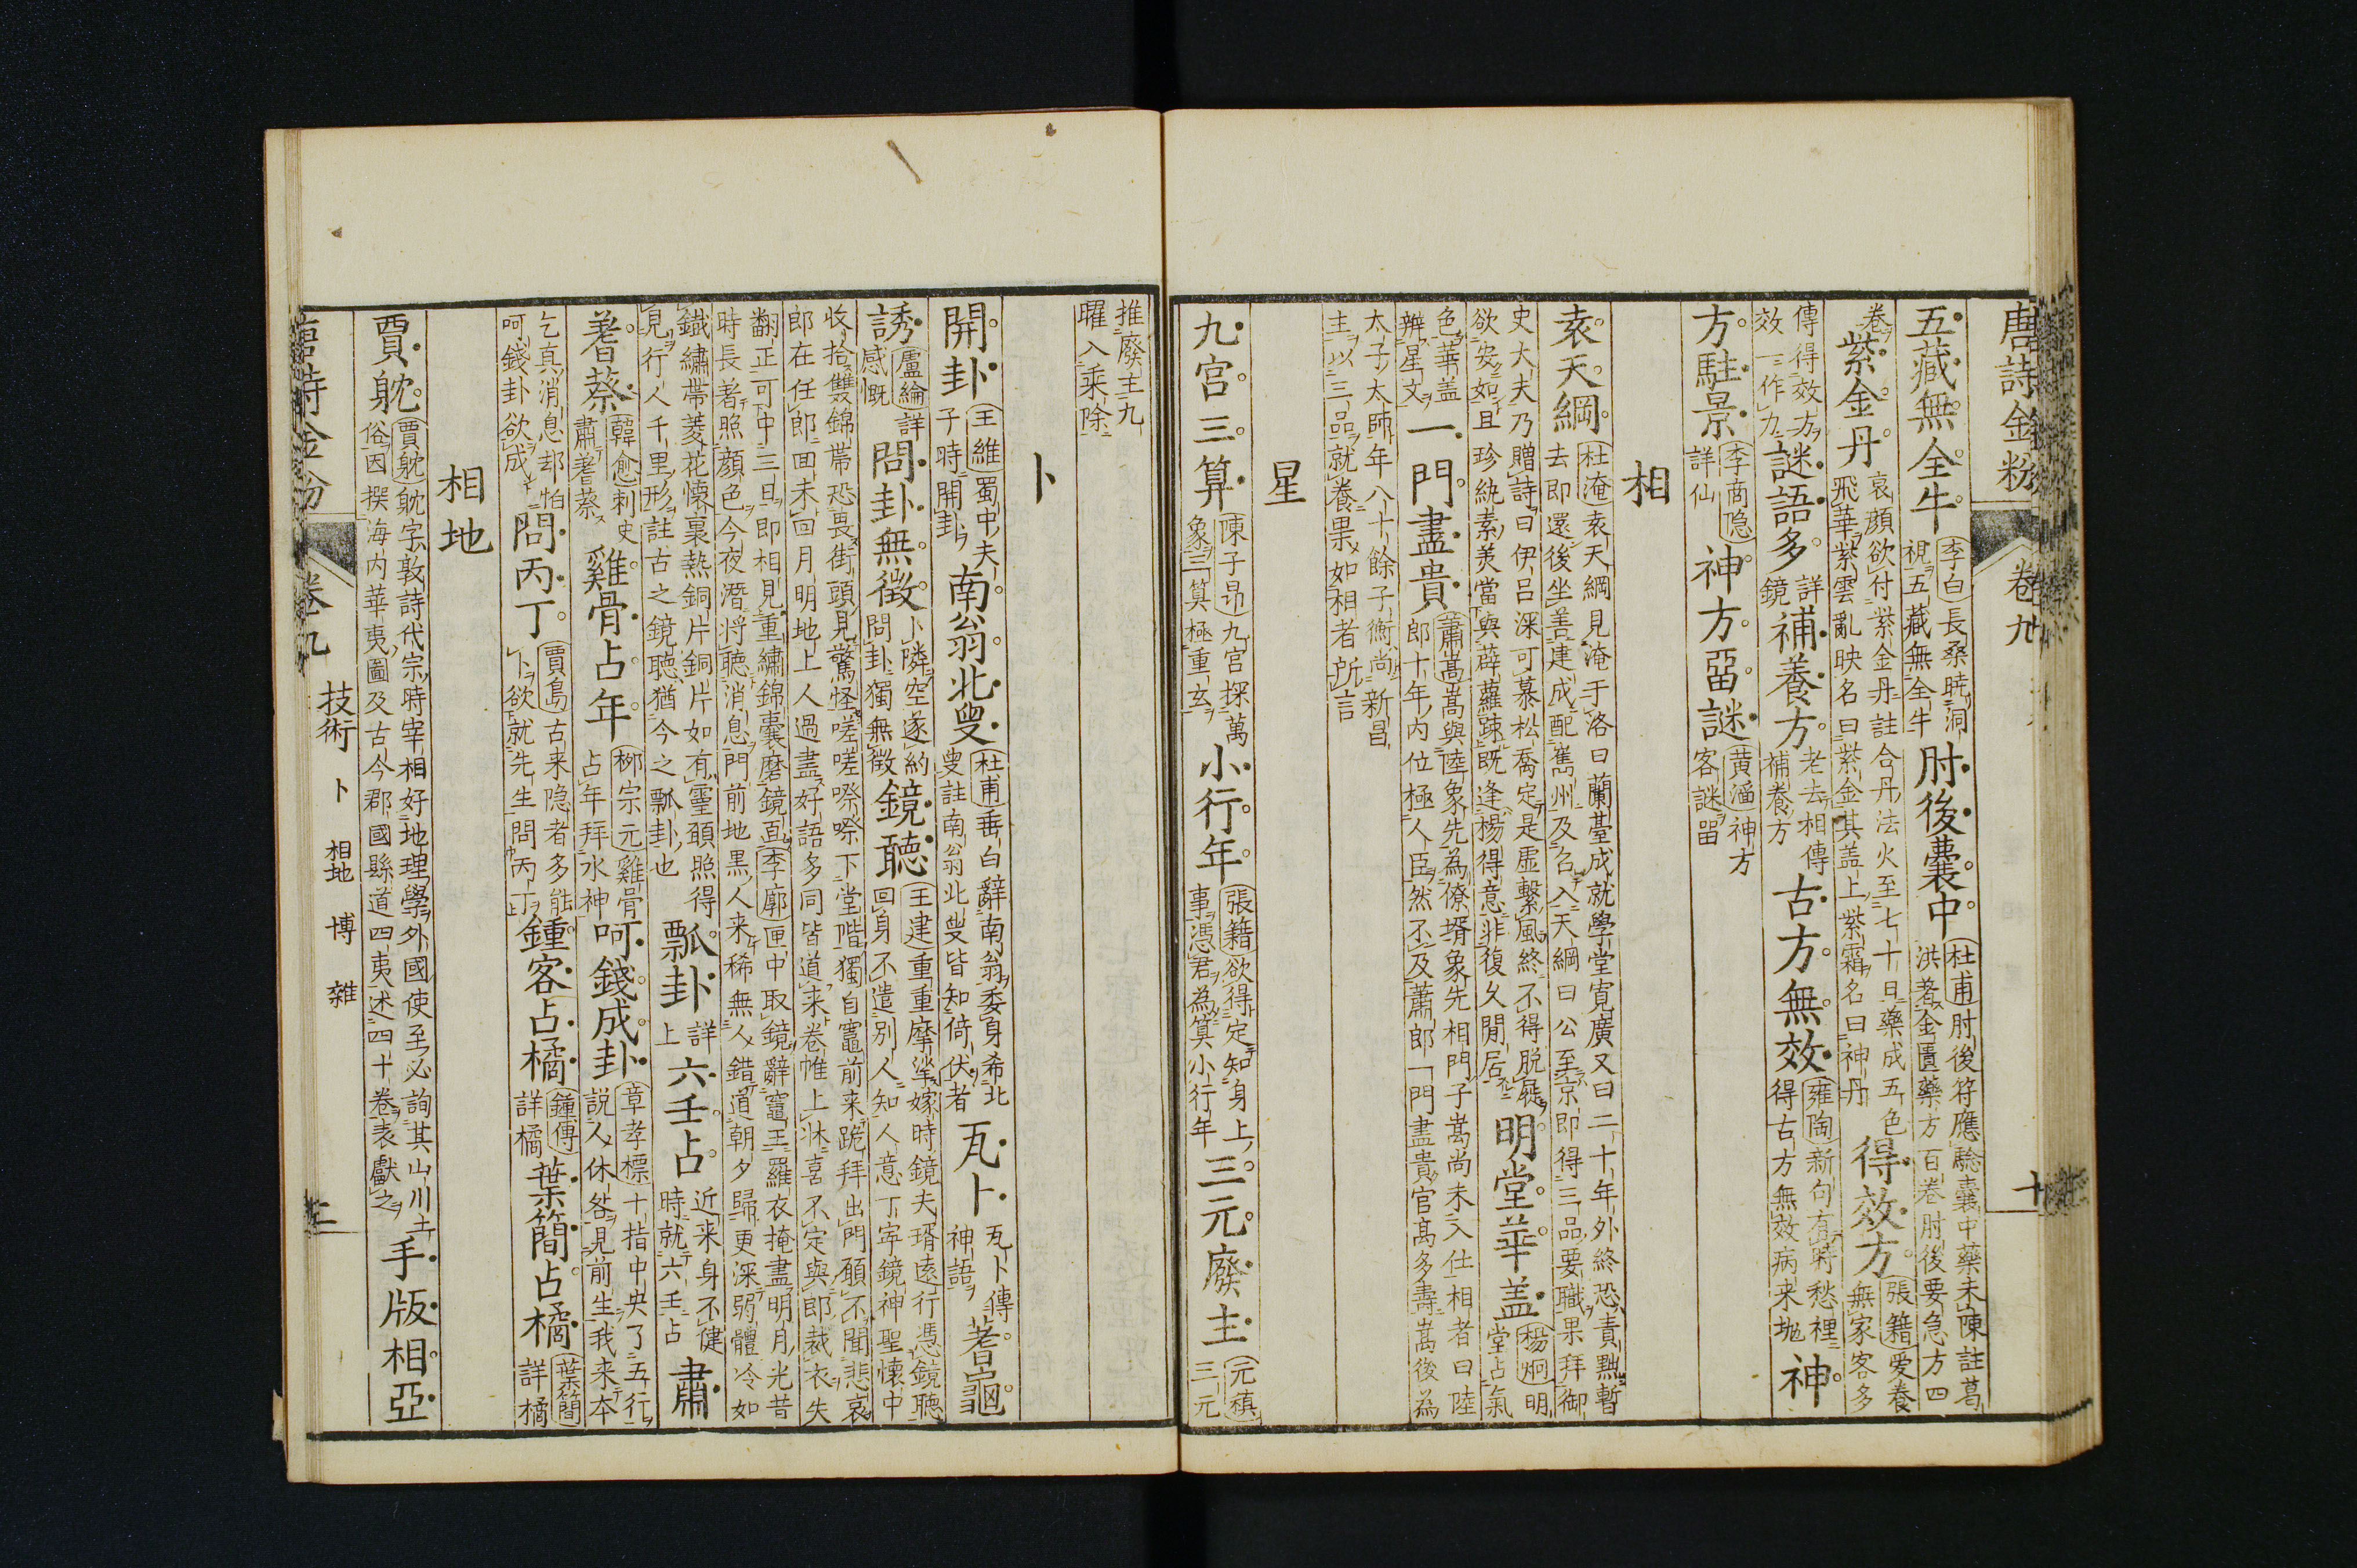 唐詩金粉 卷九 十
五藏無全牛 李白 長桑曉洞視五藏無全牛 肘後囊中 杜甫 肘後符應驗囊中藥未陳註葛洪著金匱藥方百卷肘後要急方四
卷 紫金丹 衰顏欲付紫金丹註合丹法火至七十日藥成五色飛華紫雲亂映名曰紫金其蓋上紫霜名曰神丹 得效方 張籍 愛養無家客多
傳得效方效一作力 謎語多 詳鏡 補養方 老去相傳補養方 古方無效 雍陶 新句有時愁裡得古方無效病来抛 神
方駐景 李商隐 詳仙 神方畱謎 黄滔 神方客謎畱
相
袁天綱 杜淹 袁天綱見淹于洛曰蘭臺成就學堂寛廣又曰二十年外終恐責黜暫去即還後坐善建成配嶲州及召入天綱曰公至京即得三品要職果拜御
史大夫乃贈詩曰伊吕深可慕松喬定是虚繫風終不得脱屣欲安如且珍紈素美當與薜蘿踈既逢楊得意非復久閒居 明堂華盖 楊炯 明堂占氣
色華盖辨星文 一門盡貴 蕭嵩 嵩與陸象先為僚壻象先相門子嵩尚未入仕相者曰陸郎十年内位極人臣然不及蕭郎一門盡貴官髙多壽嵩後為
太子太師年八十餘子衡尚新昌主以三品就養果如相者所言
星
九宫三算 陳子昂 九宫探萬象三算極重玄 小行年 張籍 欲得定知身上事憑君為算小行年 三元廢主 元稹 三元
推廢主九曜入乘除
卜
開卦 王維 蜀中夫子時開卦 南翁北叟 杜甫 垂白辭南翁委身希北叟註南翁北叟皆知倚伏者 瓦卜 瓦卜傳神語 蓍龜
誘 盧綸 詳感慨 問卦無徴 卜隣空遂約問卦獨無徴 鏡聽 王建 重重摩挲嫁時鏡夫壻遠行憑鏡聽回身不遣别人知人意丁寧鏡神聖懷中
收拾雙錦帶恐畏街頭見驚怪嗟嗟嚓嚓下堂階獨自竈前来跪拜出門願不聞悲哀郎在任郎回未回月明地上人過盡好語多同皆道来卷帷上牀喜不定與郎裁衣失
翻正可中三日即相見重繡錦囊磨鏡面 李廓 匣中取鏡辭竈王羅衣掩盡明月光昔時長著照顔色今夜潛將聽消息門前地黒人来稀無人錯道朝夕歸更深弱體冷如
鐵繡帶菱花懷裏熱銅片銅片如有靈頭照得見行人千里形註古之鏡聽猶今之瓢卦也 瓢卦 詳上 六壬占 近来身不健時就六壬占 肅
蓍蔡 韓愈 刺史肅蓍蔡 雞骨占年 柳宗元 雞骨占年拜水神 呵錢成卦 章孝標 十指中央了五行説人休咎見前生我来本
乞真消息却怕呵錢卦欲成 問丙丁 賈島 古来隐者多能卜欲就先生問丙丁 鍾客占橘 鍾傳 詳橘 葉簡占橘 葉簡 詳橘
相地
賈躭 賈躭 躭字敦詩代宗時宰相好地理學外國使至必詢其山川土俗因撰海内華夷圖及古今郡國縣道四夷述四十卷表獻之 手版相亞
唐詩金粉 卷九 技術 卜 相地 博 雜